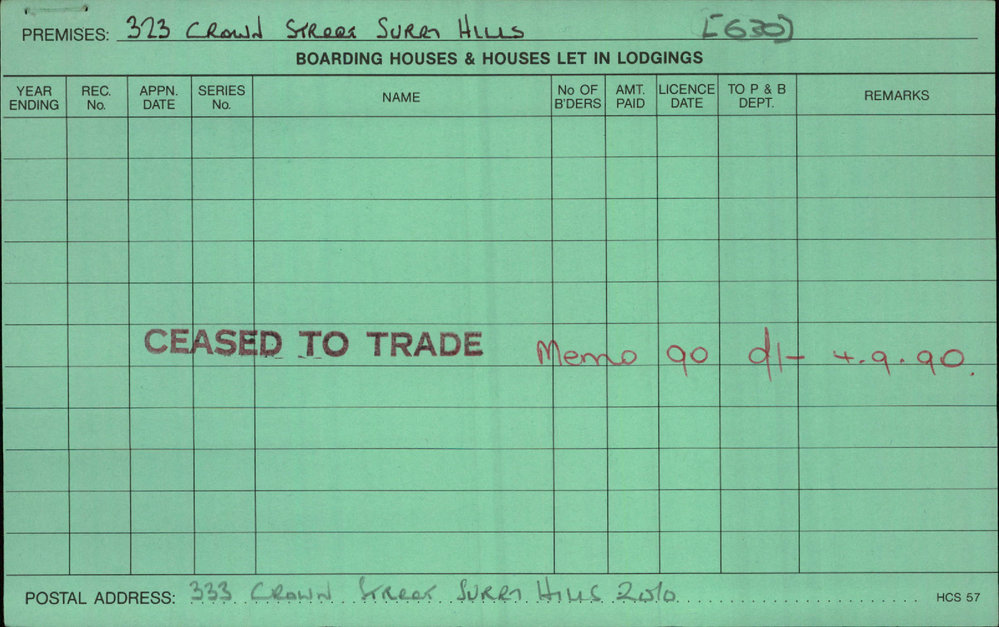 PREMISES: 323 CROWN STREET SURRY HILLS [630]
BOARDING HOUSES & HOUSES LET IN LODGINGS
YEAR ENDING REC. No. APPN. DATE SERIES No. NAME No OF B'DERS AMT. PAID LICENCE DATE TO P & B DEPT. REMARKS
CEASED TO TRADE Memo 90 d/- 4.9.90.
POSTAL ADDRESS: 333 CROWN STREET SURRY HILLS 2010 HCS 57